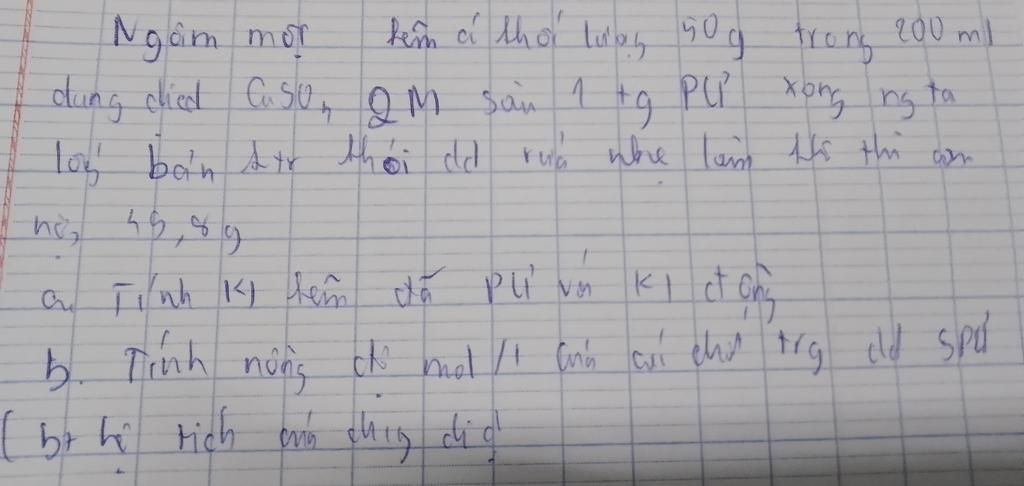 Ngâm một kẽm có khối lượng 50g trong 200 ml
dung dịch CuSO4 2M sau 1 tg PƯ xong ng ta
lấy bản ktr khỏi dd rửa nhẹ làm khô thì cân
nặng 49,8g
a. Tính Kl kẽm đã PƯ và Kl đồng
b. Tính nồng độ mol/l của cái chất trg dd spư
(bt hể tích của dung dịch